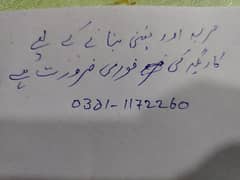 مربہ اور چٹنی بنانے کے لیے
کاریگر کی فوری ضرورت ہے
0321-1172260